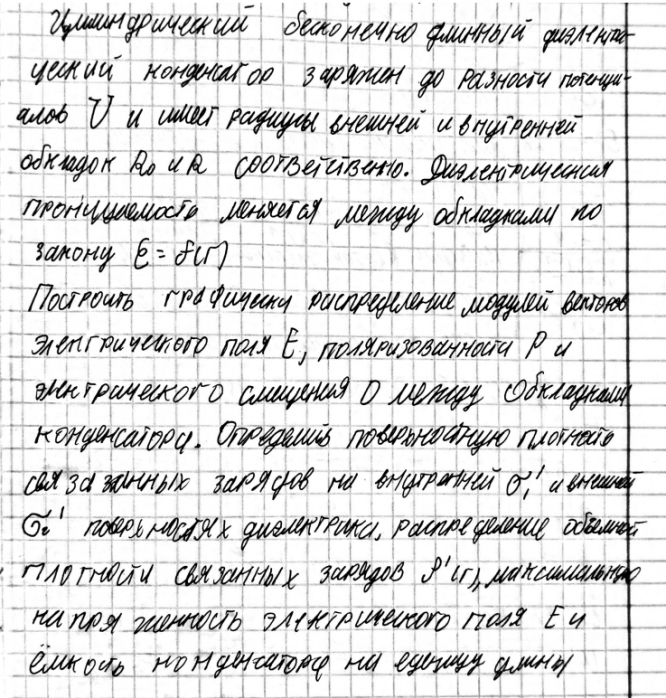 Цилиндрический бесконечно длинный диэлектри-
ческий конденсатор заряжен до разности потенци-
алов U и имеет радиусы внешней и внутренней
обкладок R₀ и R соответственно. Диэлектрическая
проницаемость меняется между обкладками по
закону ε = f(r)
Построить графически распределение модулей векторов
электрического поля E, поляризованности P и
электрического смещения D между обкладками
конденсатора. Определить поверхностную плотность
связанных зарядов на внутренней σ₁' и внешней
σ₂' поверхностях диэлектрика, распределение объёмной
плотности связанных зарядов ρ'(r), максимальную
напряженность электрического поля E и
ёмкость конденсатора на единицу длины